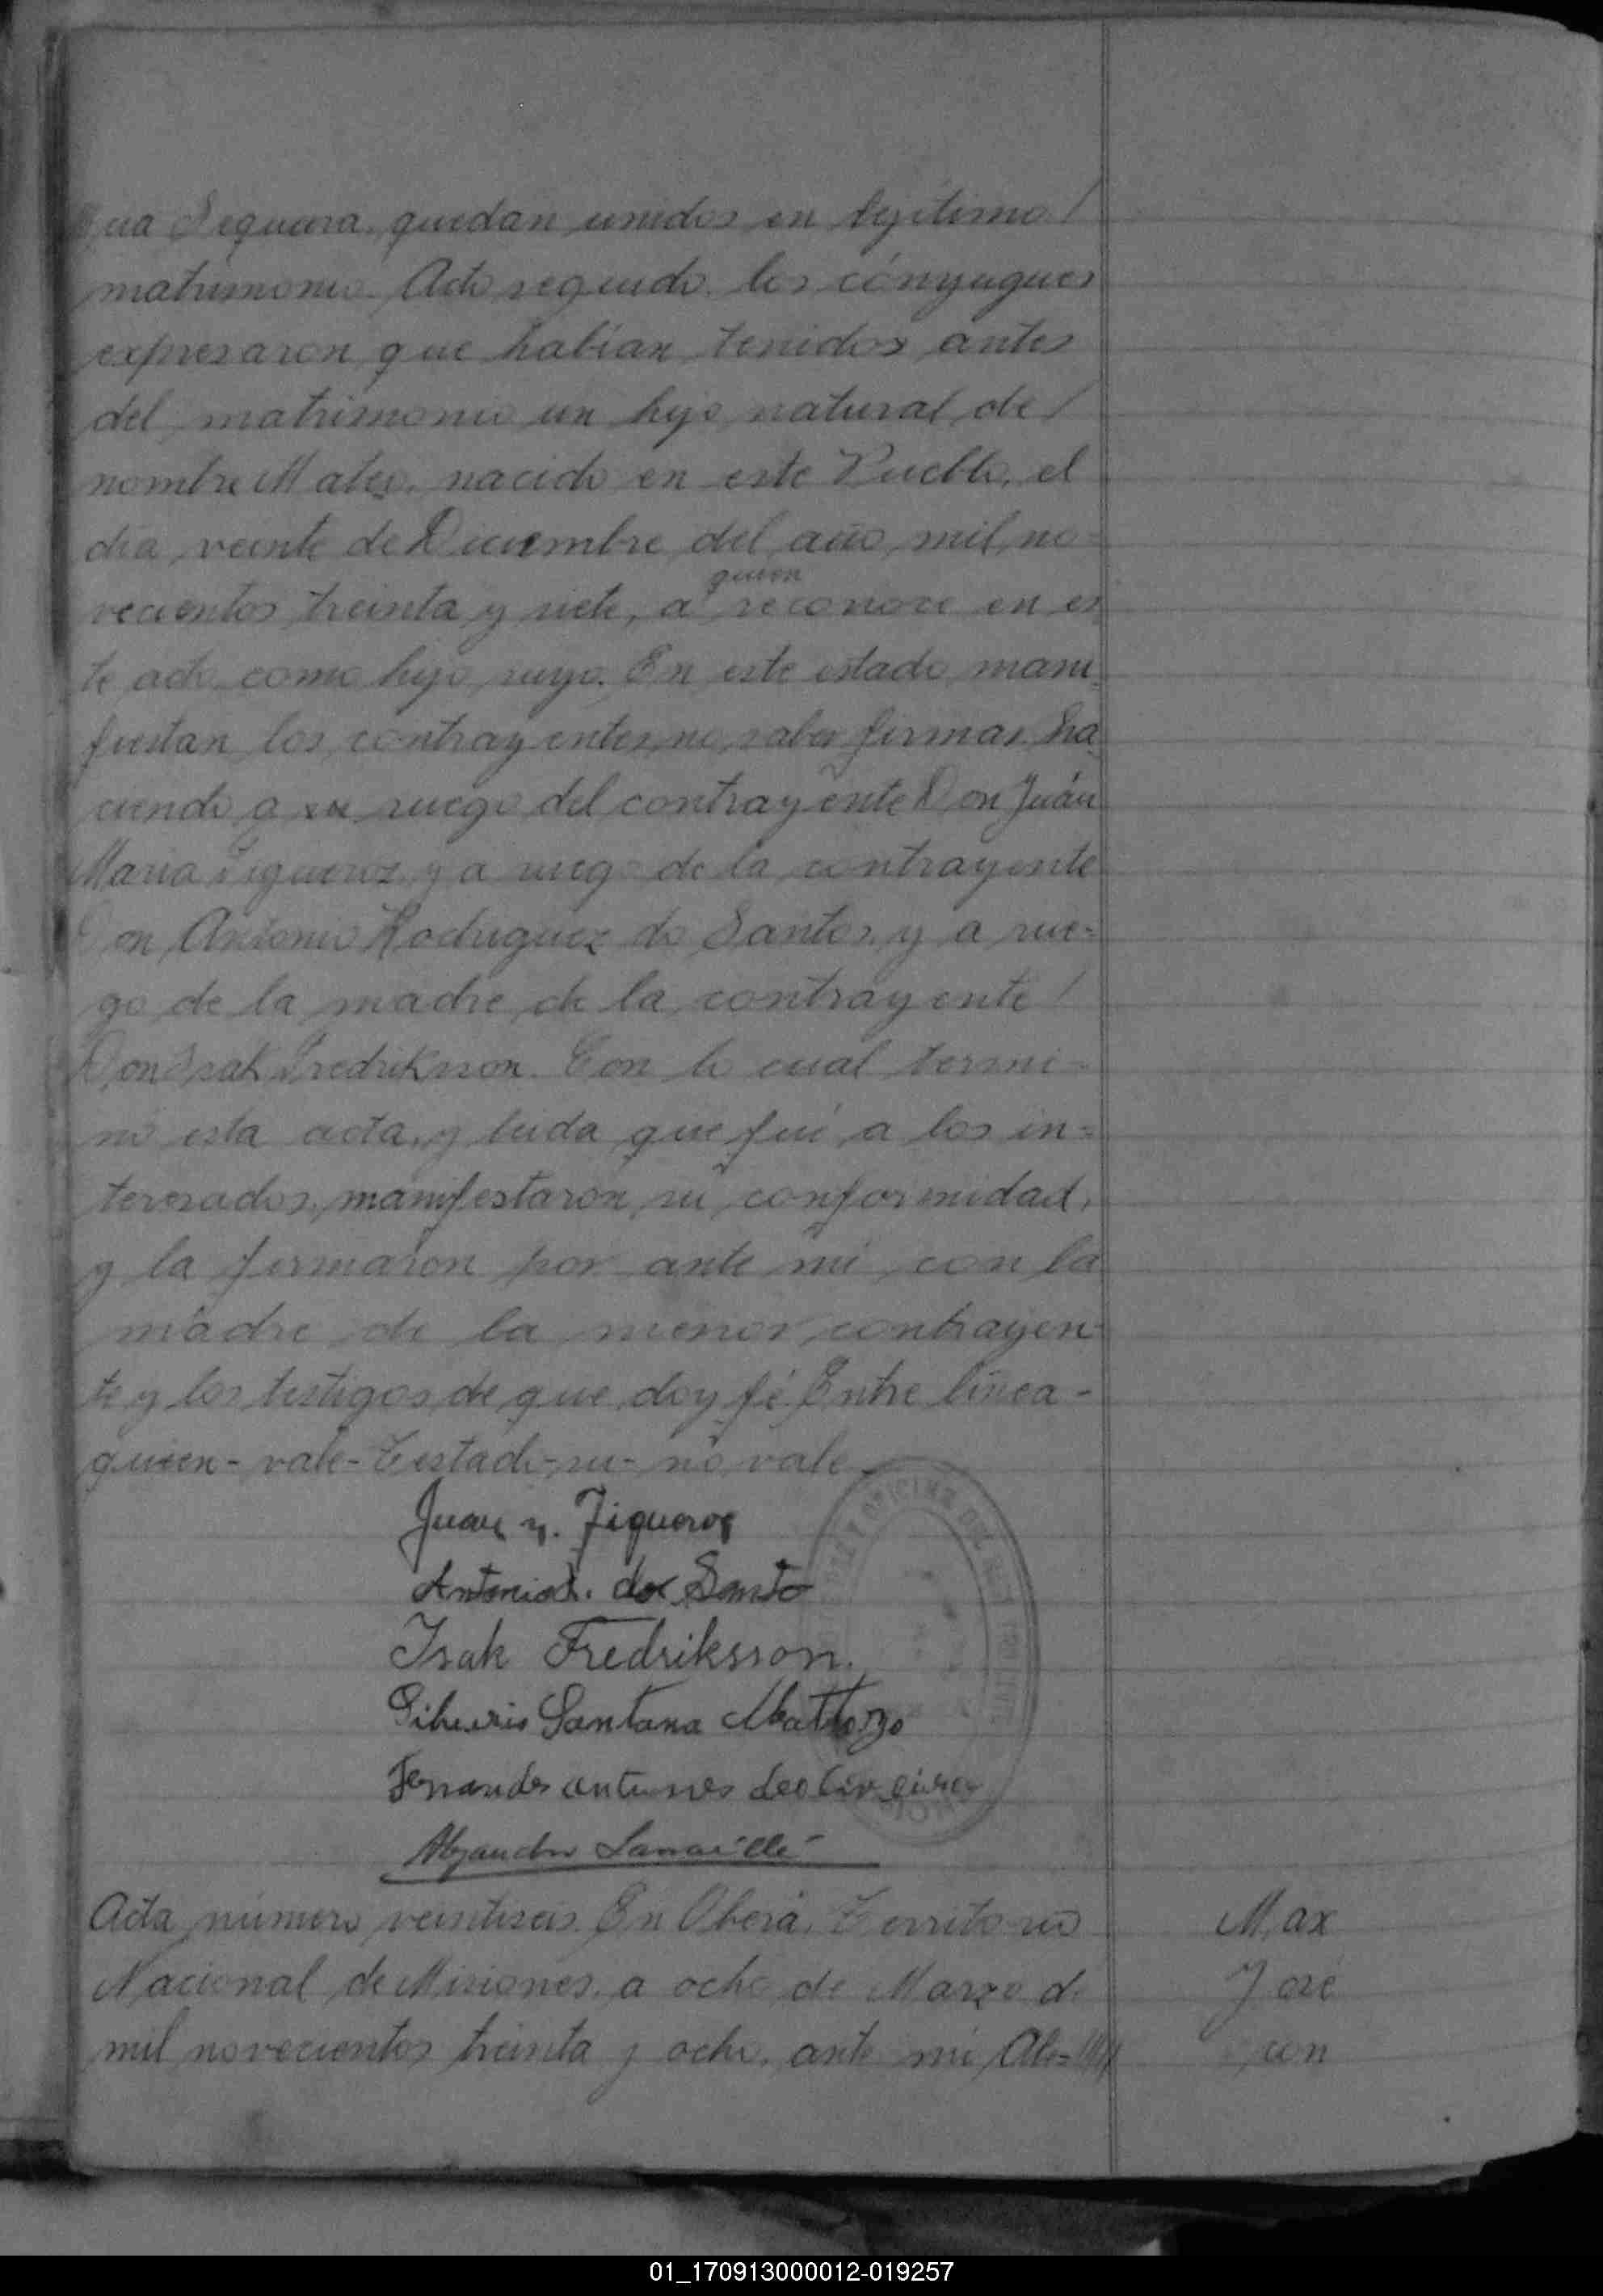 Sequeira, quedan unidos en legítimo /
matrimonio. Acto seguido, los cónyugues
expresaron que habían tenidos antes
del matrimonio un hijo natural de /
nombre Mateo, nacido en este Pueblo, el
día veinte de Diciembre del año mil no=
quien
vecientos treinta y siete, a reconoce en es
te acto como hijo suyo. En este estado mani
fiestan los contrayentes no saber firmar, ha
ciendo a su ruego del contrayente Don Juán
Maria Figueroz y a ruego de la contrayente
Don Antonio Rodriguez do Santos, y a rue=
go de la madre de la contrayente /
Don Isak Fredriksson. Con lo cual termi=
nó esta acta, y leida que fué a los in=
teresados, manifestaron su conformidad,
y la firmaron por ante mi con la
madre de la menor contrayen-
te y los testigos de que doy fé. Entre línea -
quien - vale - Testado - su - no vale
Juan M. Figueroz
Antonio R. do Santo
Isak Fredriksson.
Santana Mattozo
Fernandes antunes deoliveira
Alejandro
Acta número veintiseis. En Oberá, Territorio
Nacional de Misiones, a ocho de Marzo de
mil novecientos treinta y ocho, ante mi Ale=
Max
José
con
01_170913000012-019257